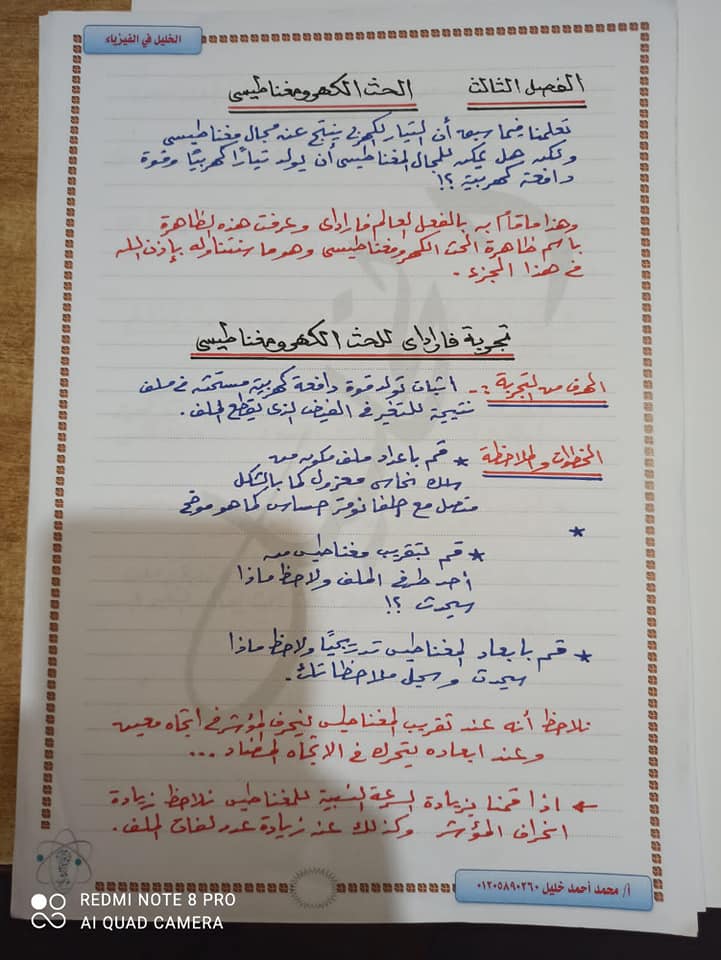 الخليل في الفيزياء
الفصل الثالث الحث الكهرومغناطيسى
تعلمنا فيما سبق أن التيار الكهربى ينتج عنه مجال مغناطيسى
ولكن هل يمكن للمجال المغناطيسى أن يولد تيارًا كهربيًا وقوة
دافعة كهربية ؟!
وهذا ما قام به بالفعل العالم فاراداى وعرفت هذه الظاهرة
باسم ظاهرة الحث الكهرومغناطيسى وهو ما سنتناوله بإذن الله
فى هذا الجزء .
تجربة فاراداى للحث الكهرومغناطيسى
الهدف من التجربة :- اثبات تولد قوة دافعة كهربية مستحثه فى ملف
نتيجة للتغير فى الفيض الذى يقطع الملف .
الخطوات والملاحظة * قم باعداد ملف مكون من
سلك نحاسى معزول كما بالشكل
متصل مع جلفانومتر حساس كما هو موضح
*
* قم بتقريب مغناطيس من
أحد طرفى الملف ولاحظ ماذا
سيحدث ؟!
* قم بابعاد المغناطيس تدريجيًا ولاحظ ماذا
سيحدث وسجل ملاحظاتك .
نلاحظ أنه عند تقريب المغناطيس ينحرف المؤشر فى اتجاه معين
وعند ابعاده يتحرك فى الاتجاه المضاد ...
← اذا قمنا بزيادة السرعة النسبية للمغناطيس نلاحظ زيادة
انحراف المؤشر وكذلك عند زيادة عدد لفات الملف .
أ/ محمد أحمد خليل ٠١٢٠٥٨٩٠٢٦٠
REDMI NOTE 8 PRO
AI QUAD CAMERA